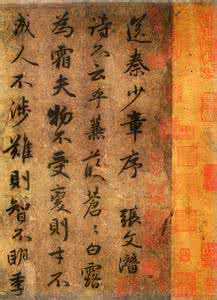 送秦少章序
張文潛
詩不云乎蒹葭蒼蒼白露
為霜夫物不受變則才不
成人不涉難則智不明季